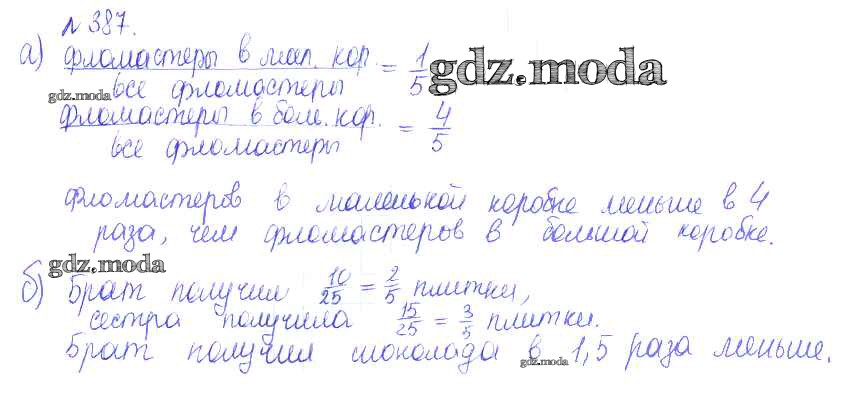 № 387.
а) фломастеры в мал. кор. / все фломастеры = 1/5 gdz.moda
gdz.moda
фломастеры в бол. кор. / все фломастеры = 4/5
Фломастеров в маленькой коробке меньше в 4
раза, чем фломастеров в большой коробке.
gdz.moda
б) Брат получил 10/25 = 2/5 плитки,
сестра получила 15/25 = 3/5 плитки.
Брат получил шоколада в 1,5 раза меньше.
gdz.moda